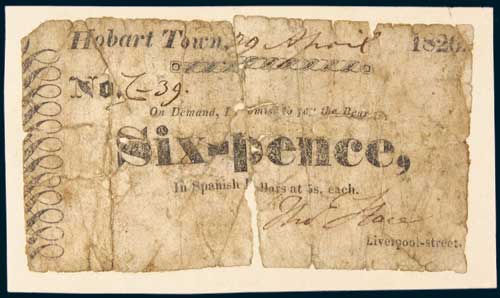 Hobart Town, 29 April 1826.
No. 7-39.
On Demand, I promise to pay the Bearer,
Six-pence,
In Spanish Dollars at 5s. each.
Liverpool-street.